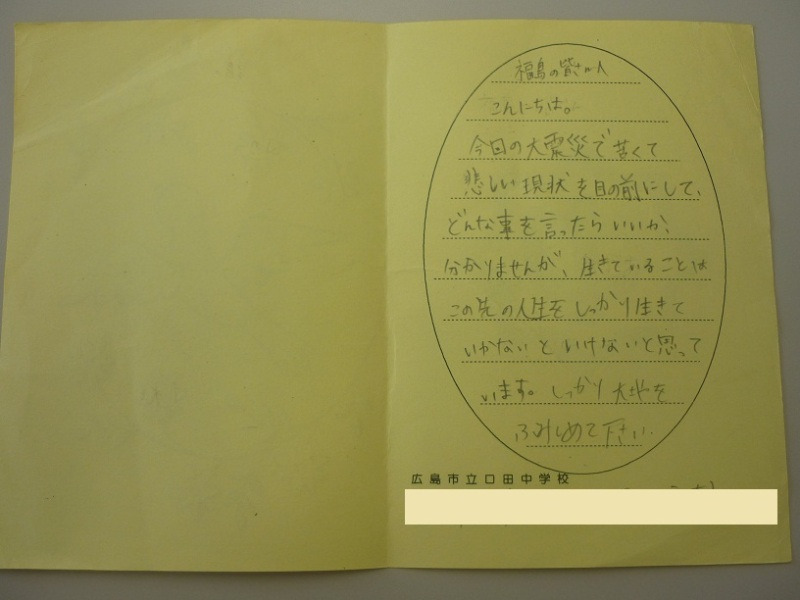 福島の皆さんへ
こんにちは。
今回の大震災で苦くて
悲しい現状を目の前にして、
どんな事を言ったらいいか、
分かりませんが、生きていることは
この先の人生をしっかり生きて
いかないといけないと思って
います。しっかり大地を
ふみしめて下さい。
広島市立口田中学校